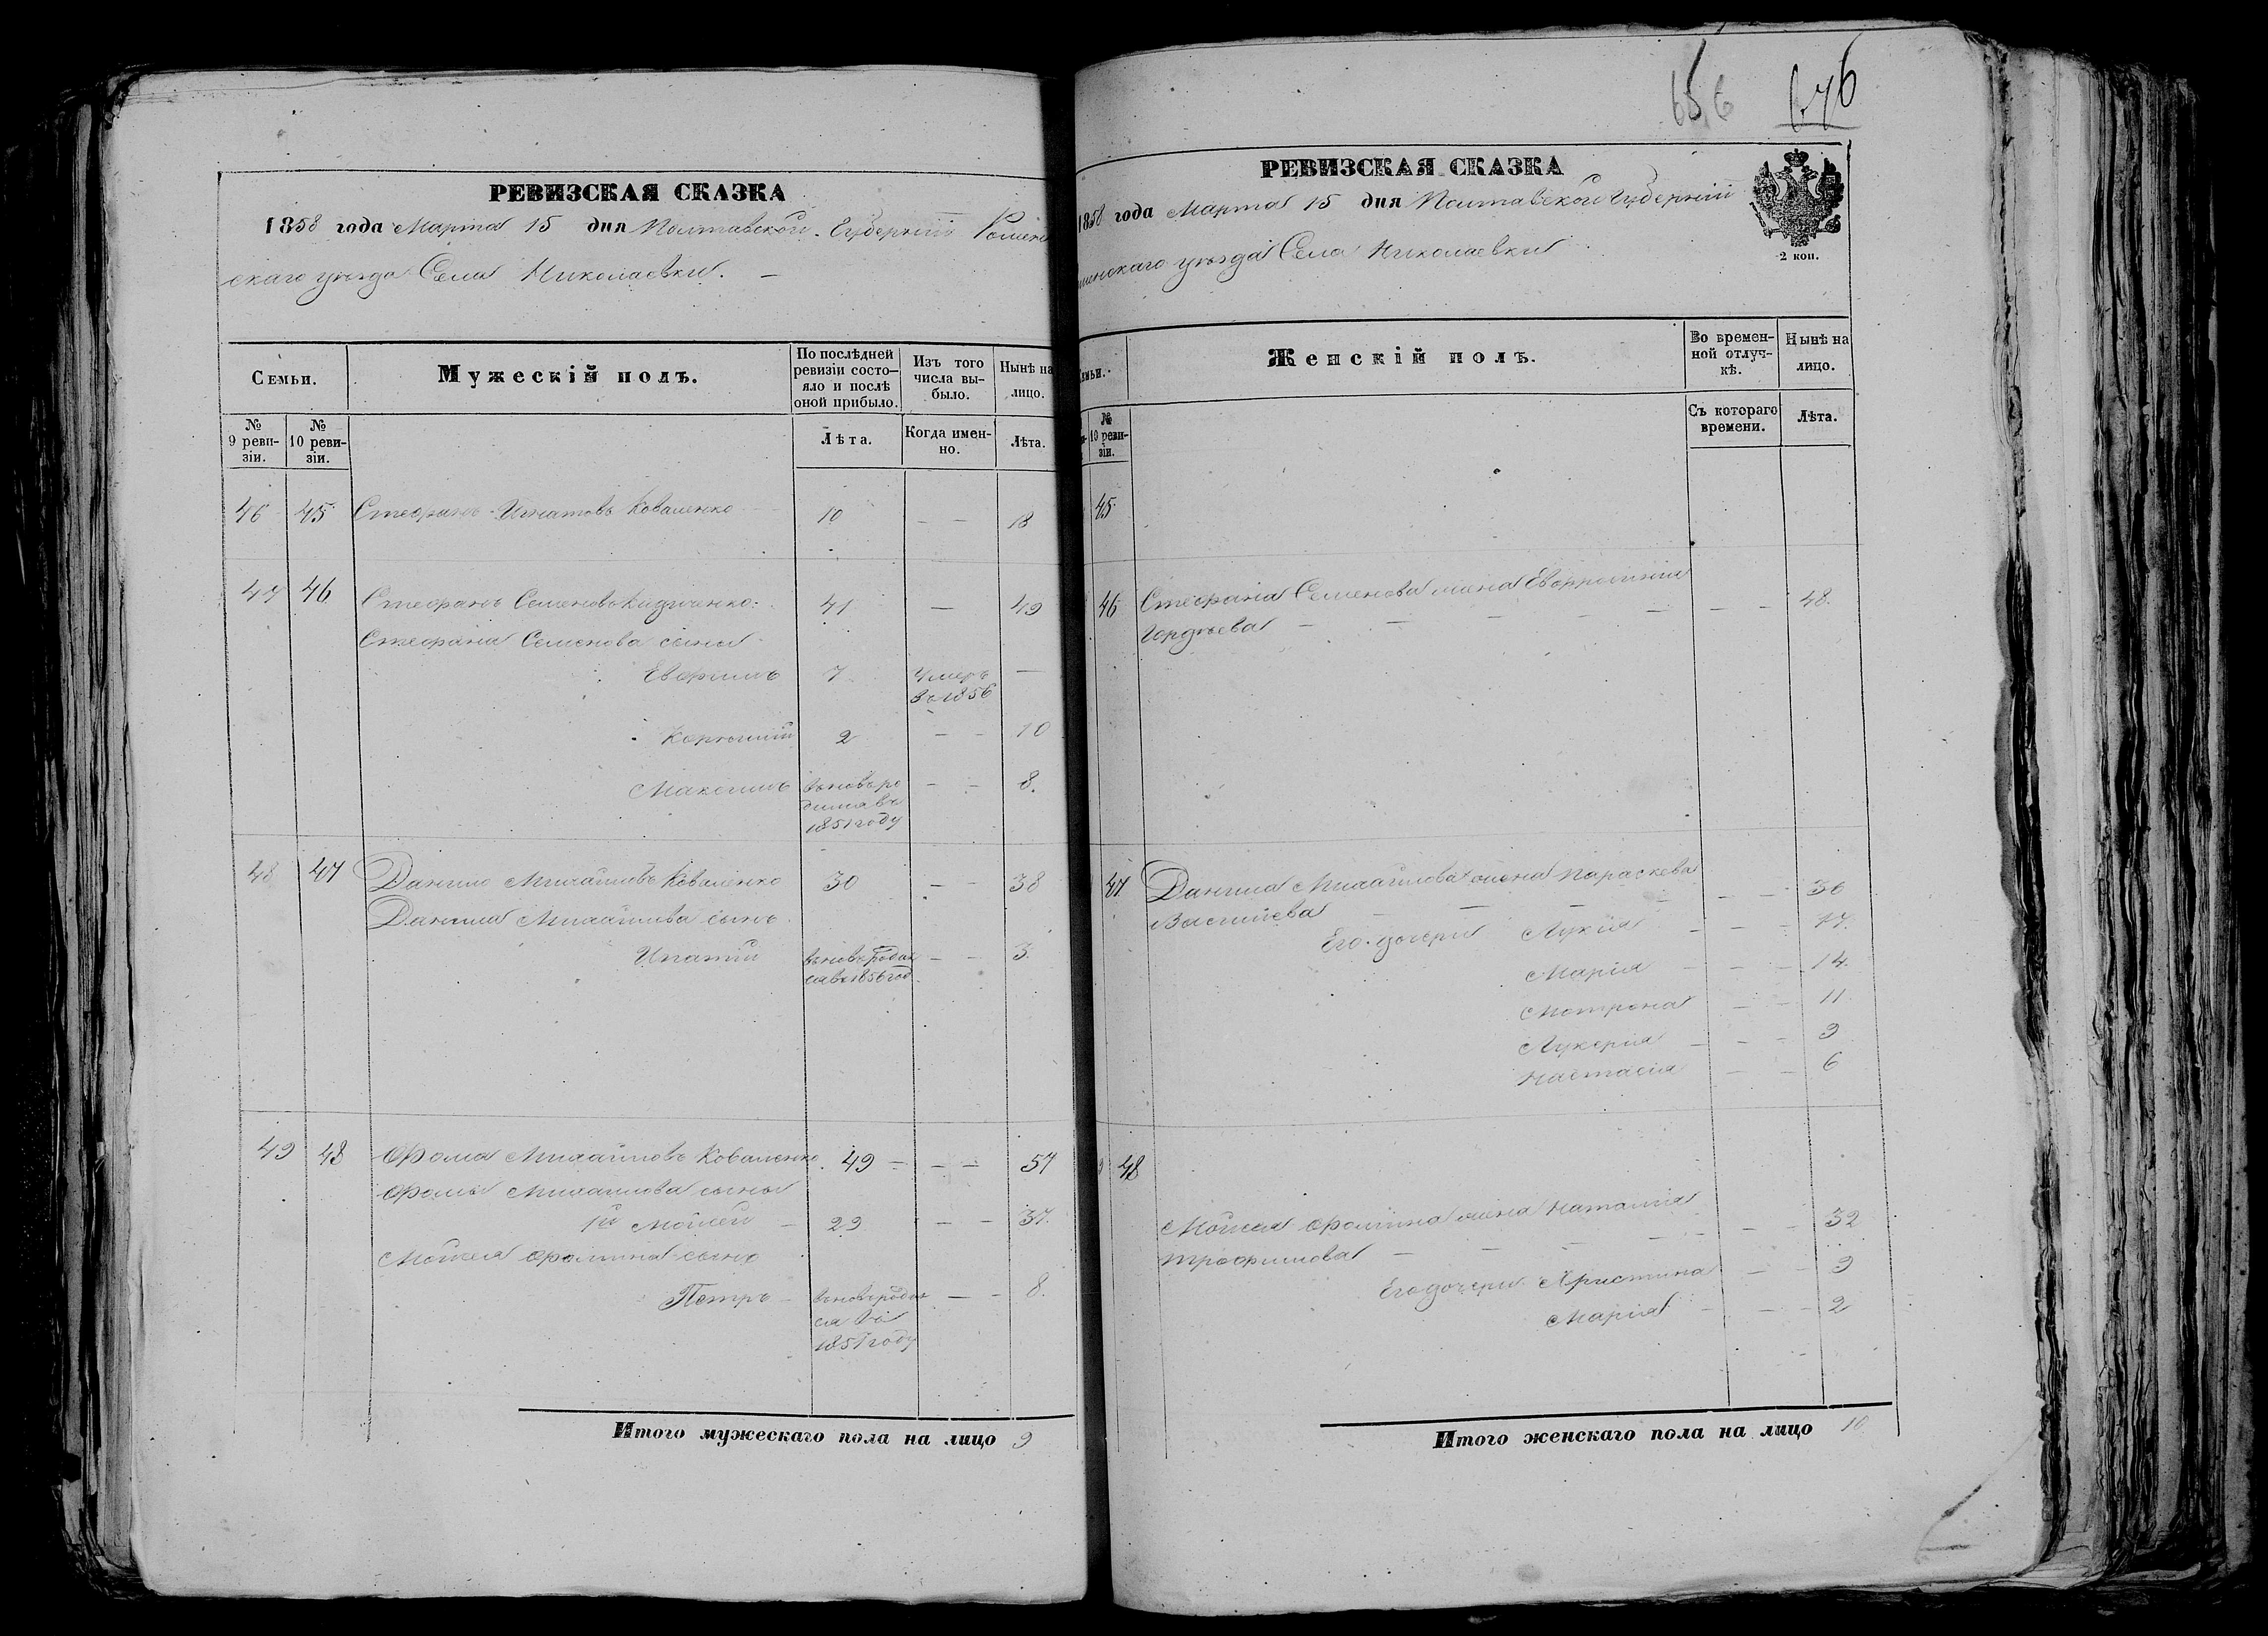 РЕВИЗСКАЯ СКАЗКА
1858 года Марта 15 дня Полтавской Губерніи Ромен
скаго уѣзда Села Николаевки.
Семьи.
Мужескій полъ.
По послѣдней ревизіи состо-
яло и послѣ
оной прибыло.
Изъ того
числа вы-
было.
Нынѣ на
лицо.
№
9 реви-
зіи.
№
10 реви-
зіи.
Лѣта.
Когда имен-
но.
Лѣта.
46 45 Стефанъ Игнатовъ Коваленко 10 — — 18
47 46 Стефанъ Семеновъ 41 — 49
Стефана Семенова сыны
Евфимъ 7 Умеръ —
въ 1856
2 — — 10
Максимъ вновь ро — — 8.
дился въ
1851 году
48 47 Данило Михайловъ Коваленко 30 — — 38
Данила Михайлова сынъ
Игнатій вновь родил — — 3.
ся въ 1856 год
49 48 Фома Михайловъ Коваленко 49 — — — 57
Фомы Михайлова сыны
1й Мойсей — 29 — — 37.
Мойсея Фомина сынъ
Петръ — вновь родил — — 8.
ся въ
1851 году
Итого мужескаго пола на лицо 9
656 676
РЕВИЗСКАЯ СКАЗКА
1858 года Марта 15 дня Полтавской Губерніи
менскаго уѣзда Села Николаевки
2 коп.
емьи.
Женскій полъ.
Во времен-
ной отлуч-
кѣ.
Нынѣ на
лицо.
№
10 реви-
зіи.
Съ котораго
времени.
Лѣта.
45
46 Стефана Семенова жена Евфросинія
Гордѣева — — — — — — — 48.
47 Данила Михайлова жена Параскева
Василіева — — — — — — 36
Его дочери Лукія — — — 17.
Марія — — — 14.
Мотрона — — 11
Лукерія — — — 9
Настасія — — 6
48
Мойсея Фомина жена Наталія
Трофимова — — — — — — 32
Его дочери Христина — — 9
Марія — — — 2
Итого женскаго пола на лицо 10